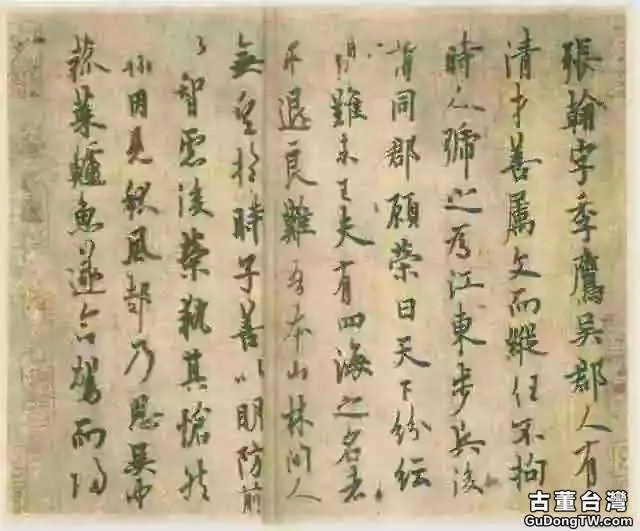 張翰字季鷹吳郡人有
清才善屬文而縱任不拘
時人號之為江東步兵後
謂同郡顧榮曰天下紛紜
禍難未已夫有四海之名者
求退良難吾本山林間人
無望於時子善以明防前
以智慮後榮執其愴然
翰因見秋風起乃思吳中
菰菜鱸魚遂命駕而歸
古董台灣
GuDongTW.com